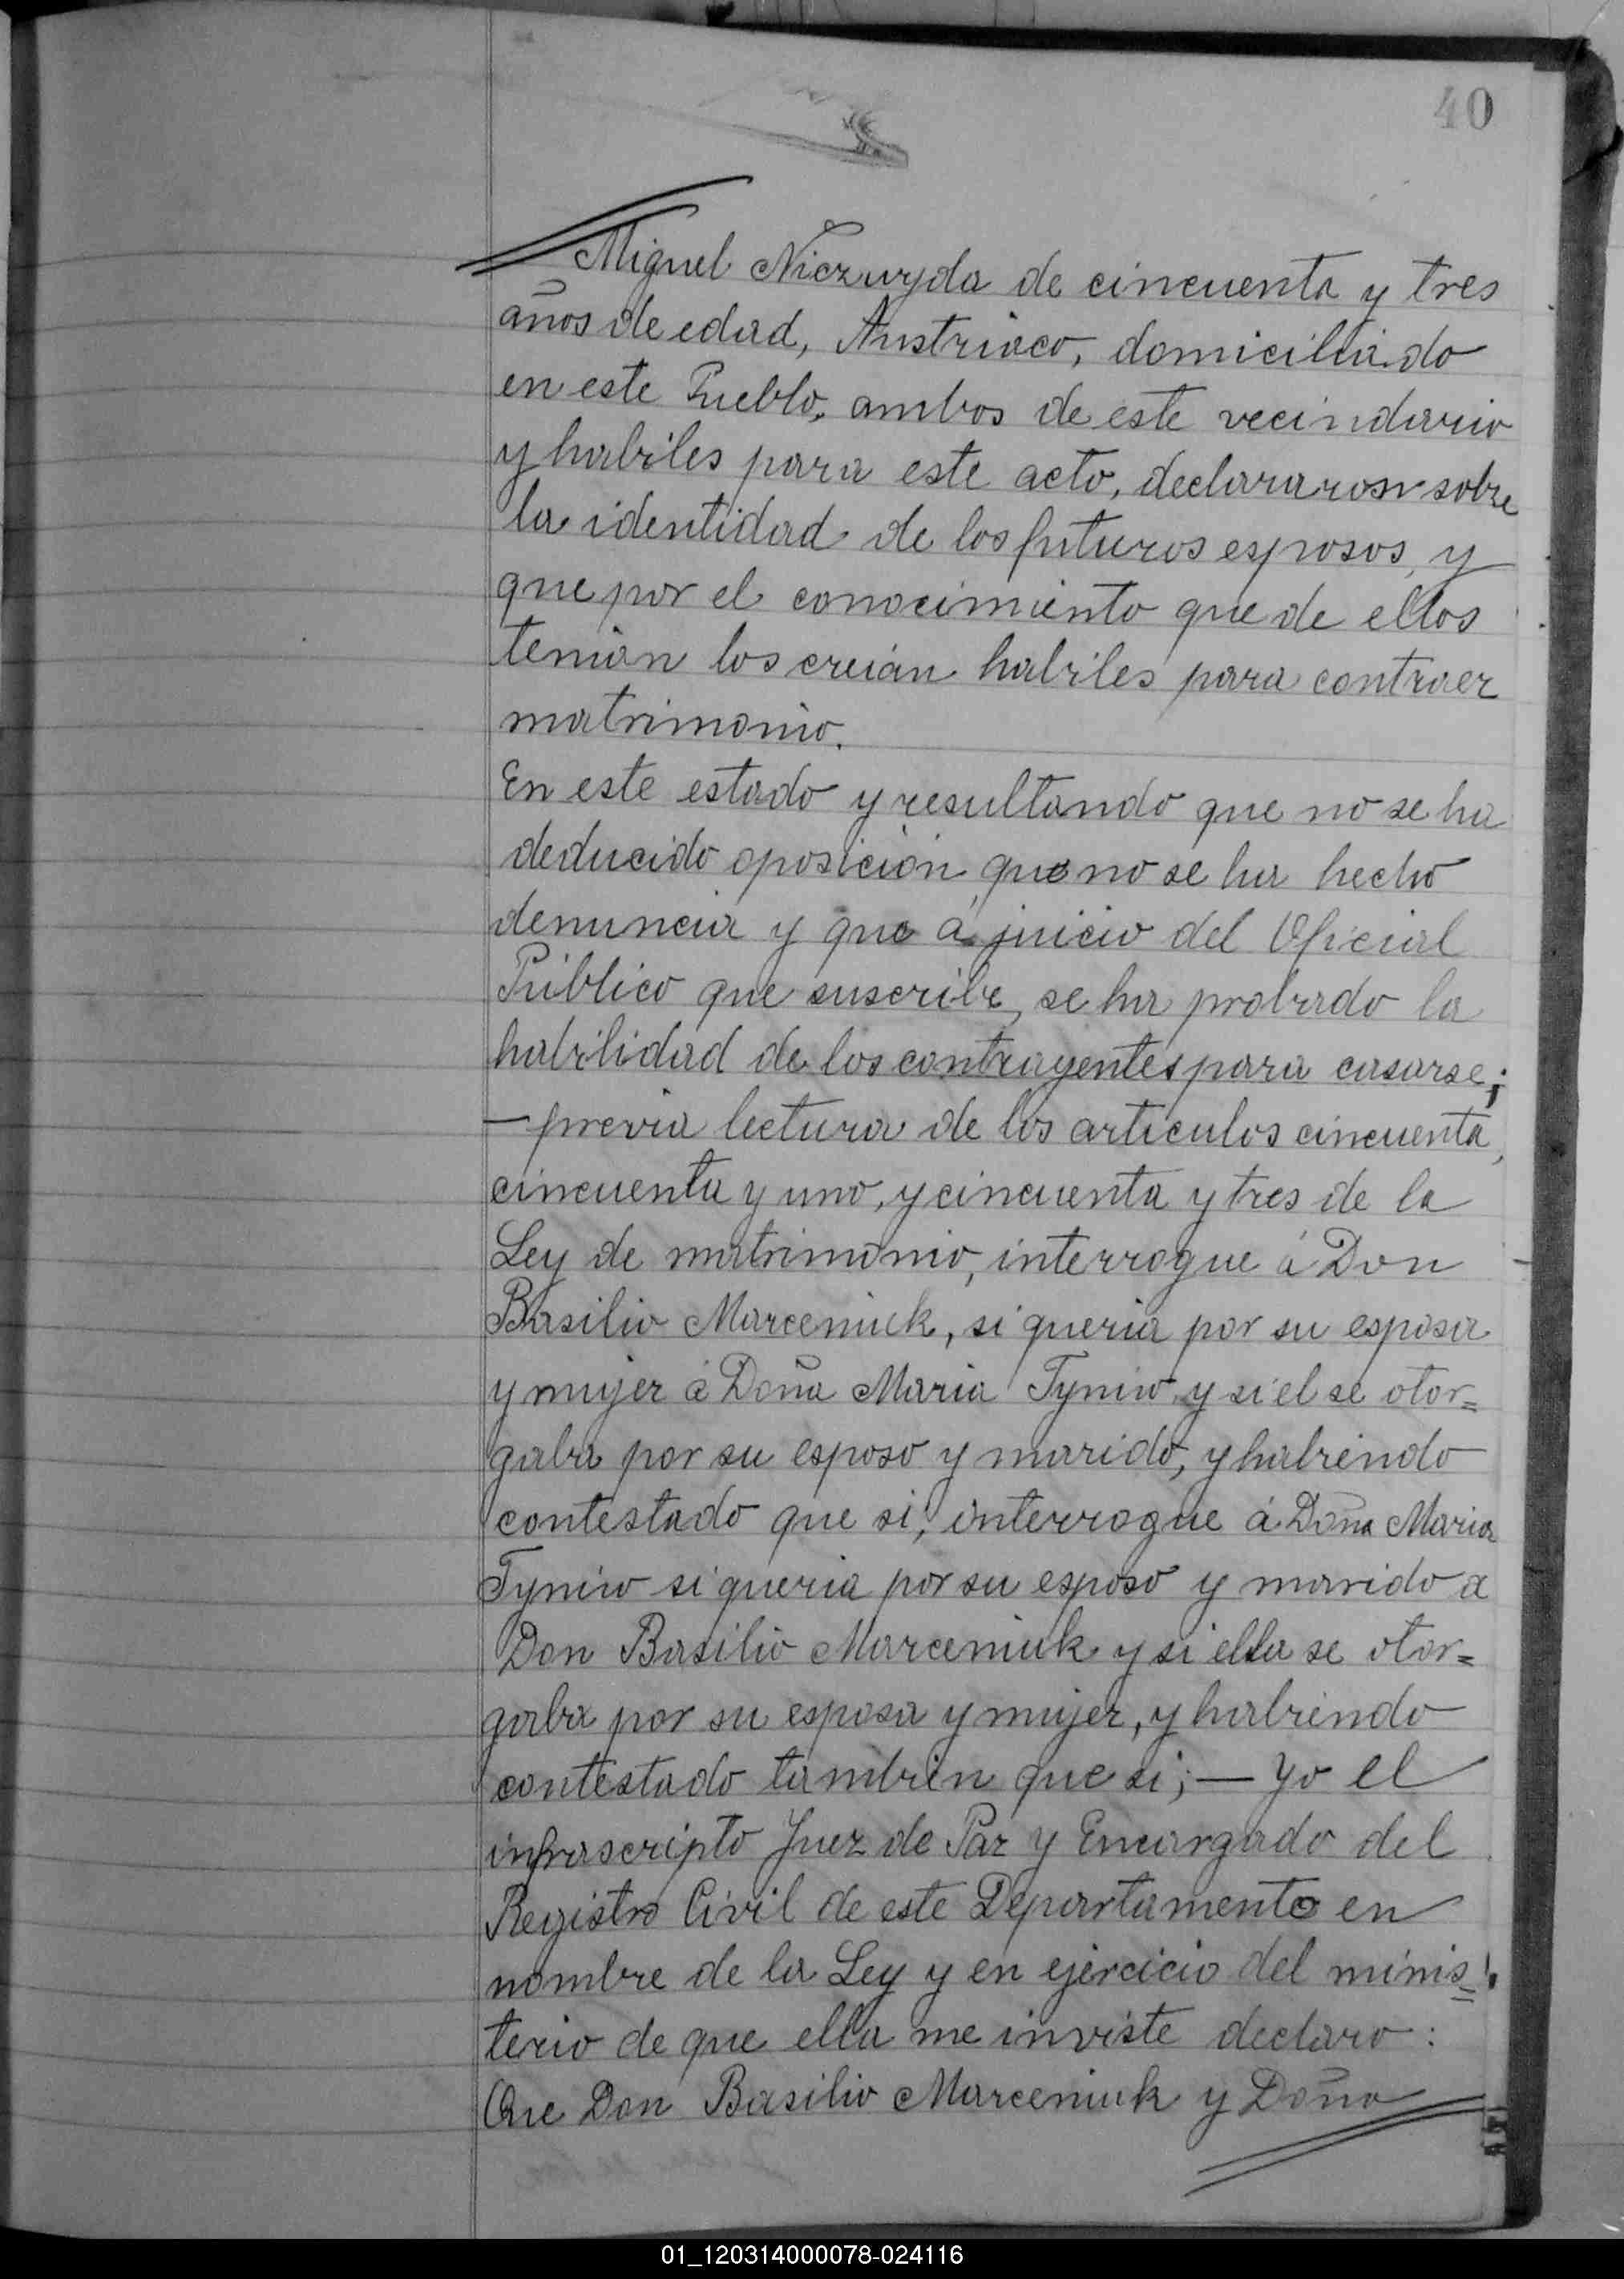 40
Miguel Niczuyda de cincuenta y tres
años de edad, Austriaco, domiciliado
en este Pueblo, ambos de este vecindario
y habiles para este acto, declararon sobre
la identidad de los futuros esposos, y
que por el conocimiento que de ellos
tenian los creián habiles para contraer
matrimonio.
En este estado y resultando que no se ha
deducido oposición que no se ha hecho
denuncia y que á juicio del Oficial
Público que suscribe, se ha probado la
habilidad de los contrayentes para casarse;
— previa lectura de los articulos cincuenta,
cincuenta y uno, y cincuenta y tres de la
Ley de matrimonio, interrogue á Don
Basilio Marceniuk, si queria por su esposa
y mujer á Doña Maria Tyniw y si el se otor=
gaba por su esposo y marido, y habiendo
contestado que si; interrogue á Doña Maria
Tyniw si queria por su esposo y marido a
Don Basilio Marceniuk y si ella se otor=
gaba por su esposa y mujer, y habiendo
contestado tambien que si; — Yo el
infrascripto Juez de Paz y Encargado del
Registro Civil de este Departamento en
nombre de la Ley y en ejercicio del minis=
terio de que ella me inviste declaro:
Que Don Basilio Marceniuk y Doña
01_120314000078-024116